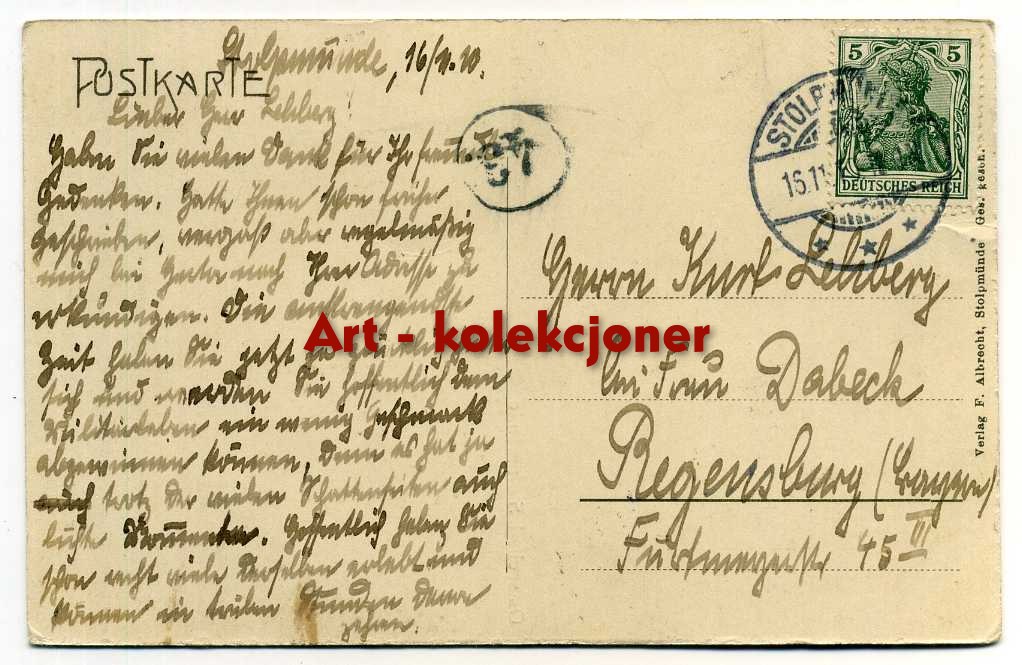 Stolpmünde, 16/11.10.
POSTKARTE
Lieber Herr Lehberg!
Haben Sie vielen Dank für Ihr freundl.
Gedenken. Hatte Ihnen schon früher
geschrieben, vergaß aber regelmäßig
mich bei nach Ihrer Adresse zu
erkundigen. Die anstrengendste
Zeit haben Sie jetzt
sich und werden Sie hoffentlich dem
Militärleben ein wenig Geschmack
abgewinnen können, denn es hat ja
auch trotz der vielen Schattenseiten auch
lichte Momente. Hoffentlich haben Sie
schon recht viele derselben erlebt und
können in trüben Stunden davon
zehren.
5 5
DEUTSCHES REICH
STOLPMÜNDE
16.11
Herrn Kurt Lehberg
bei Frau Dabeck
Regensburg (Bayern)
45 III
Verlag F. Albrecht, Stolpmünde Ges. gesch.
Art - kolekcjoner